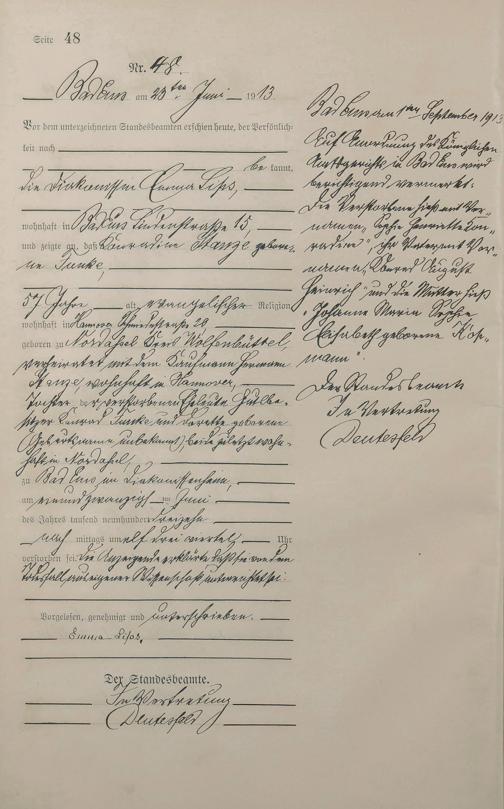 Seite 48
Nr. 48.
Bad Ems am 23ten Juni 1913
Vor dem unterzeichneten Standesbeamten erschien heute, der Persönlich-
keit nach
be kannt,
die Diakonissin Emma Lips,
wohnhaft in Bad Ems Lindenstraße 15,
und zeigte an, daß Conradine Stange gebore-
ne Funke
57 Jahre alt, evangelischer Religion
wohnhaft in Hannover 20,
geboren zu Nordassel Kreis Wolfenbüttel,
verheiratet mit dem Kaufmann Hermann
Stange wohnhaft in Hannover,
Tochter der verstorbenen Eheleute
Conrad Funke und Dorette geborene
(Geburtsname unbekannt) beide zuletzt wohn-
haft in Nordassel,
zu Bad Ems, im Diakonissenheim,
am einundzwanzigsten Juni
des Jahres tausend neunhundert dreizehn
nach mittags um elf drei viertel Uhr
verstorben sei. Die Anzeigende erklärte daß sie von dem
Todesfall aus eigener Wissenschaft unterrichtet sei.
Vorgelesen, genehmigt und unterschrieben.
Emma Lips.
Der Standesbeamte.
In Vertretung
Deutesfeld
Bad Ems am 1ten September 1913
Auf Anordnung des Königlichen
Amtsgerichts in Bad Ems wird
berichtigend vermerkt:
Die Verstorbene hieß mit Vor-
namen „Sophie Henriette Con-
radine", ihr Vater mit Vor-
namen „Konrad August
Heinrich" und die Mutter hieß
„Johanne Marie Sophie
Elisabeth geborene
Der Standesbeamte
In Vertretung
Deutesfeld